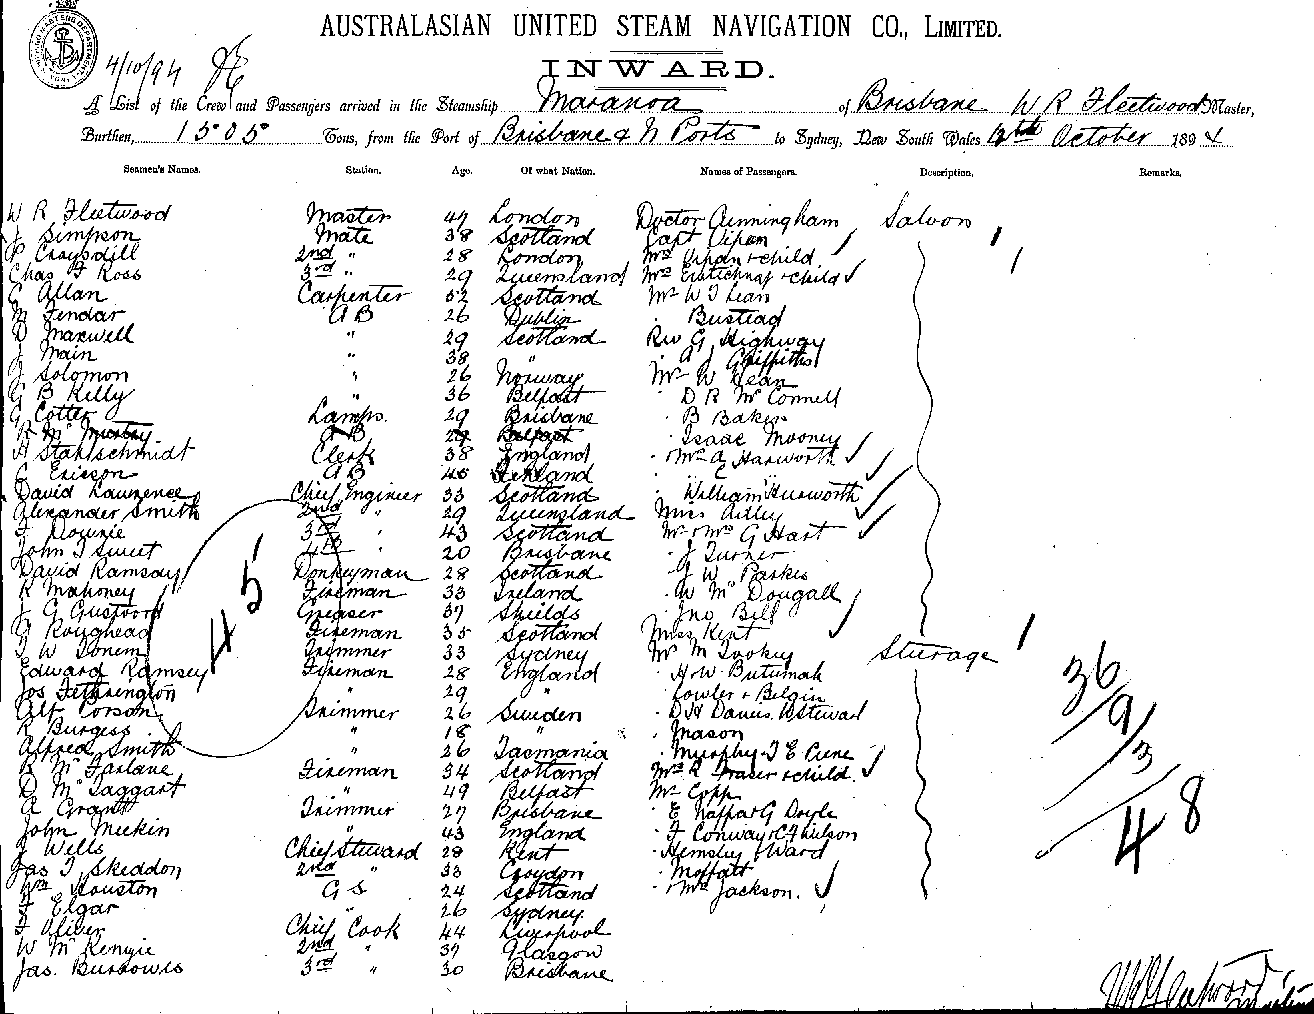 AUSTRALASIAN UNITED STEAM NAVIGATION CO., LIMITED.
4/10/94
INWARD.
A List of the Crew and Passengers arrived in the Steamship Maranoa of Brisbane W R Fleetwood Master,
Burthen, 1505 Tons, from the Port of Brisbane & N Ports to Sydney, New South Wales October 1894
Seamen's Names. Station. Age. Of what Nation. Names of Passengers. Description. Remarks.
W R Fleetwood Master 47 London Doctor Cunningham Saloon
J Simpson Mate 38 Scotland Capt Vipan
2nd " 28 London Mrs Vipan & child
Chas F Ross 3rd " 29 Queensland Mrs & child
Allan Carpenter 52 Scotland Mr W J Lean
M Fendar A B 26 Dublin
D Maxwell " 29 Scotland Rev G Highway
J Main " 38 " Griffiths
J Solomon " 26 Norway Mr W Dean
G B Kelly " 36 Belfast D R McConnell
G Cotter Lamps. 29 Brisbane B Baker
A B Belfast Isaac Mooney
H Stahlschmidt Clerk 38 England Mrs A Haxworth
Ericson A B 45
David Lawrence Chief Engineer 33 Scotland William
Alexander Smith 2nd " 29 Queensland Miss
J Downie 3rd " 43 Scotland Mr & Mrs G Hart
John J Sweet 4th 20 Brisbane J Turner
David Ramsay Donkeyman 28 Scotland J W Parkes
R Mahoney Fireman 33 Ireland W McDougall
J G Greaser 37 Shields Jno Bell
J Roughead Fireman 35 Scotland Miss Kent
J W Trimmer 33 Sydney Mr M Sturage
Edward Ramsey Fireman 28 England H W
Jos Fetherington " 29 " Fowler &
Alf Trimmer 26 Sweden D H Davies
R Burgess " 18 " Mason
Alfred Smith " 26 Tasmania Murphy
R McFarlane Fireman 34 Scotland Mrs R Fraser & child
D McTaggart " 49 Belfast Mr Copp
A Grant Trimmer 27 Brisbane Doyle
John Meekin " 43 England F Conway
J Wells Chief Steward 28 Kent Hemsley & Ward
Jas T Skeddon 2nd " 33 Croydon Moffatt
Wm Houston G S 24 Scotland Mrs Jackson.
Elgar " 26 Sydney
J Oliver Chief Cook 44 Liverpool
W McKenzie 2nd " 37 Glasgow
Jas. Burrowes 3rd " 30 Brisbane
45
36
9
3
48